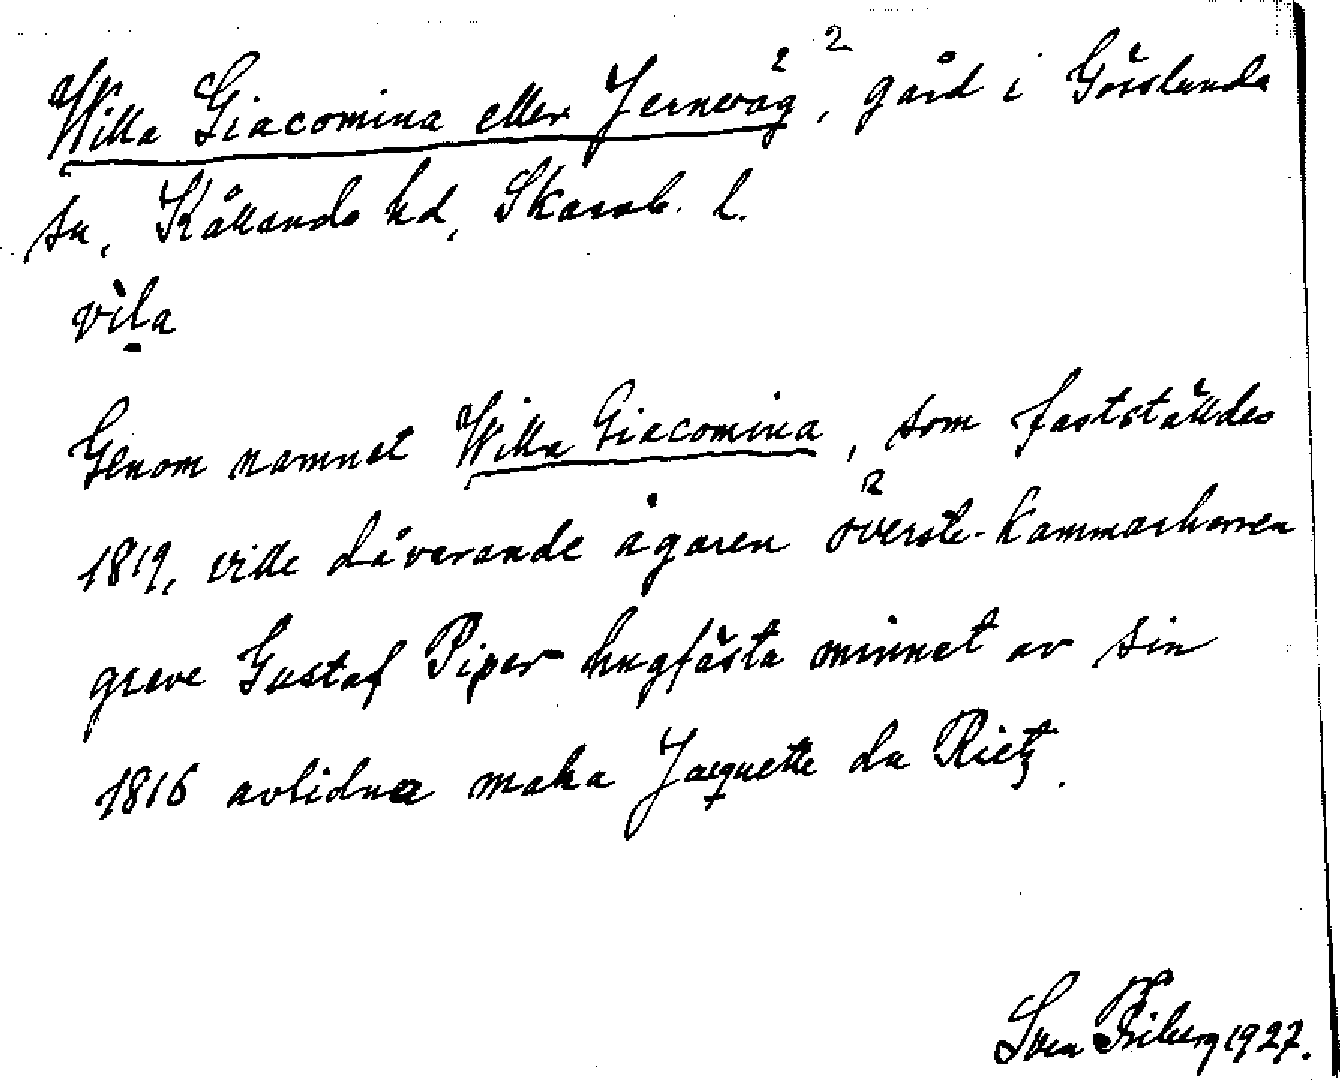 Willa Giacomina eller Jernvåg ², gård i Gösslunda
sn, Kållands hd, Skarab. l.
vìla
Genom namnet Willa Giacomina, som fastställdes
1819, ville dåvarande ägaren överste-kammarherren
greve Gustaf Piper hugfästa minnet av sin
1816 avlidna maka Jacquette du Rietz.
Sven Friberg 1927.